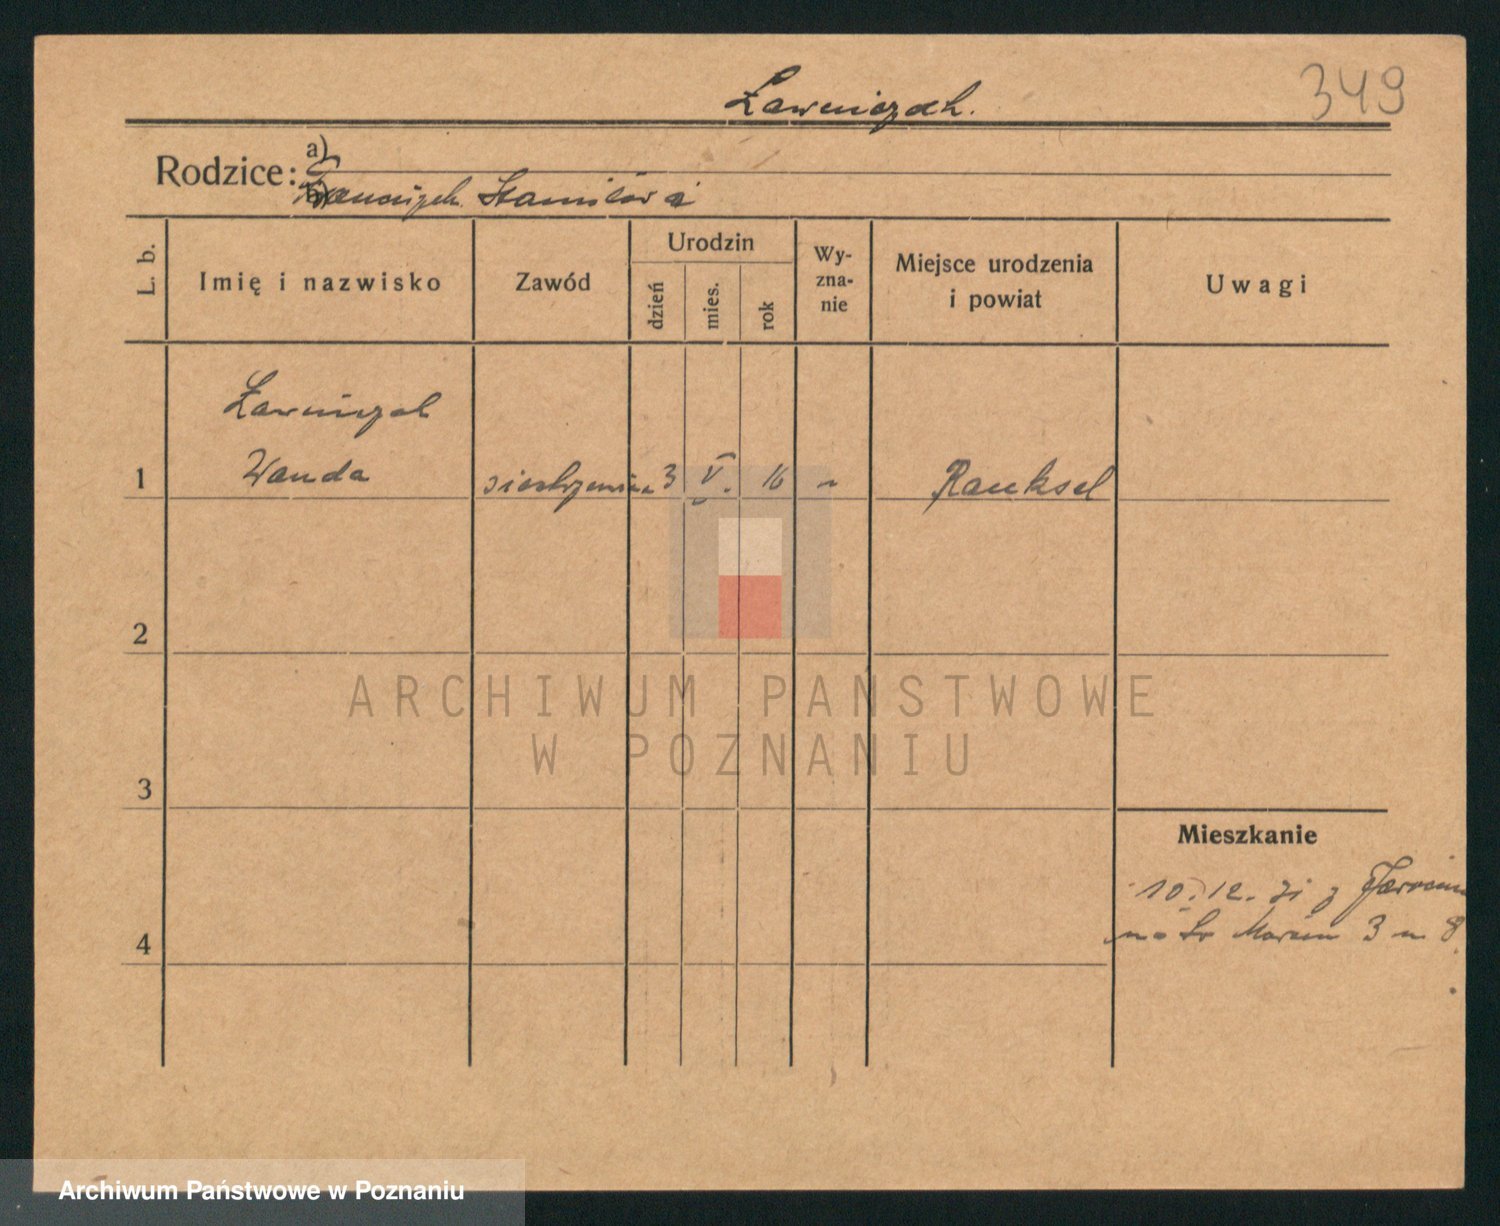 349
Ławniczak.
Rodzice:
a)
b)
Franciszek Stanisława
L. b.
Imię i nazwisko
Zawód
Urodzin
dzień
mies.
rok
Wy-
zna-
nie
Miejsce urodzenia
i powiat
Uwagi
Ławniczak
1 Wanda siostrzenica 3 V. 16 " Rauksel
2
3
4
Mieszkanie
10.12.31 z Jarocina
na Św Marcin 3 m 8.
ARCHIWUM PAŃSTWOWE
W POZNANIU
Archiwum Państwowe w Poznaniu